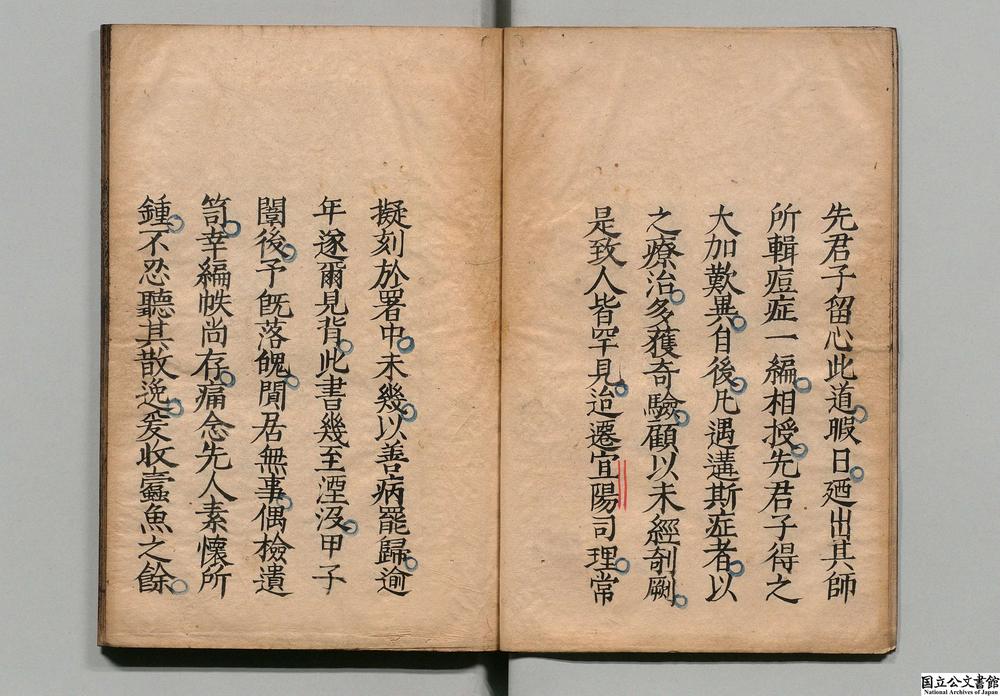 先君子留心此道暇日廼出其師
所輯痘症一編相授先君子得之
大加歎異自後凡遇遘斯症者以
之療治多獲奇驗顧以未經剞劂
是致人皆罕見迨遷宜陽司理常
擬刻於署中未幾以善病罷歸逾
年遂爾見背此書幾至湮沒甲子
闈後予旣落魄閒居無事偶檢遺
笥幸編帙尚存痛念先人素懷所
鍾不忍聽其散逸爰收蠹魚之餘
国立公文書館
National Archives of Japan